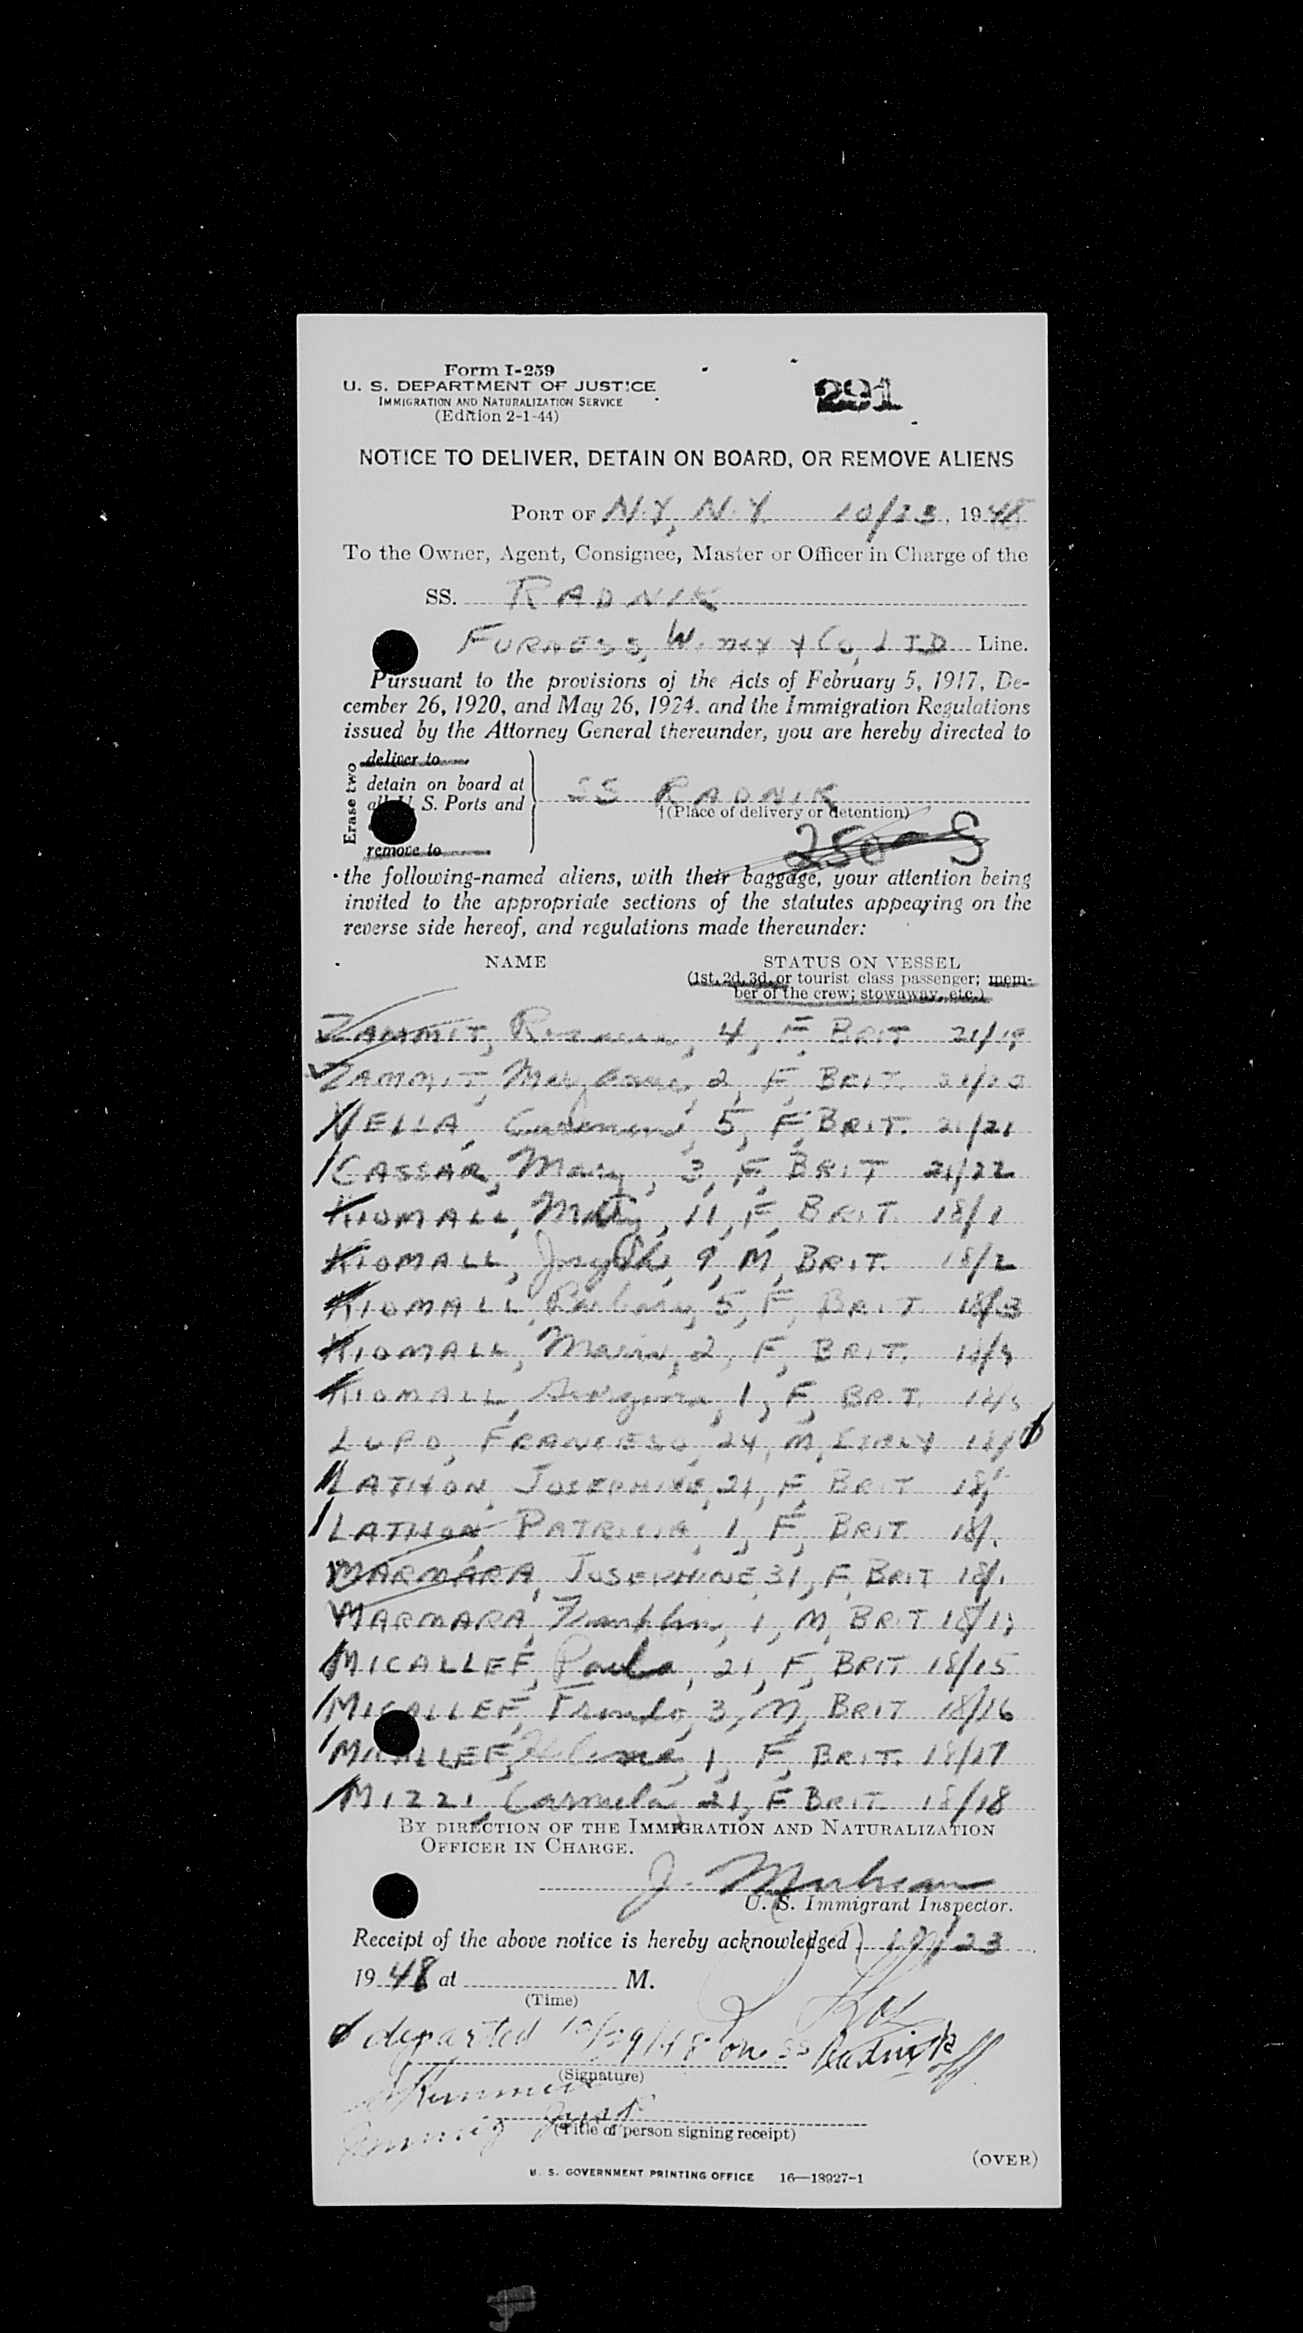 Form I-259
U. S. DEPARTMENT OF JUSTICE
IMMIGRATION AND NATURALIZATION SERVICE
(Edition 2-1-44)
291
NOTICE TO DELIVER, DETAIN ON BOARD, OR REMOVE ALIENS
PORT OF N.Y, N.Y. 10/23, 1948
To the Owner, Agent, Consignee, Master or Officer in Charge of the
SS. RADNIK
FURNESS, Withy & Co, LTD Line.
Pursuant to the provisions of the Acts of February 5, 1917, De-
cember 26, 1920, and May 26, 1924. and the Immigration Regulations
issued by the Attorney General thereunder, you are hereby directed to
Erase two
deliver to
detain on board at
all U. S. Ports and
remove to
SS RADNIK
†(Place of delivery or detention)
the following-named aliens, with their baggage, your attention being
invited to the appropriate sections of the statutes appearing on the
reverse side hereof, and regulations made thereunder:
NAME STATUS ON VESSEL
(1st, 2d, 3d, or tourist class passenger; mem-
ber of the crew; stowaway, etc.)
ZAMMIT, 4, F, BRIT 21/19
ZAMMIT, Mary, 2, F, BRIT.
VELLA, 5, F, BRIT. 21/21
CASSAR, Mary, 3, F, BRIT 21/22
KIOMALL, Mary, 11, F, BRIT. 18/1
KIOMALL, Joseph, 9, M, BRIT. 18/2
KIOMALL, Barbara, 5, F, BRIT 18/3
KIOMALL, 2, F, BRIT.
KIOMALL, 1, F, BRIT.
LUPO, FRANCESCO, 24, M, ITALY
LATHON, JOSEPHINE, 21, F, BRIT 18/
LATHON PATRICIA, 1, F, BRIT 18/
MARMARA, JOSEPHINE, 31, F, BRIT 18/
MARMARA, Franklin, 1, M, BRIT 18/
MICALLEF, Paula, 21, F, BRIT 18/15
MICALLEF, 3, M, BRIT 18/16
MICALLEF, 1, F, BRIT. 18/17
MIZZI, Carmela, 21, F BRIT 18/18
BY DIRECTION OF THE IMMIGRATION AND NATURALIZATION
OFFICER IN CHARGE.
J.
U. S. Immigrant Inspector.
Receipt of the above notice is hereby acknowledged 10/23
1948 at M.
(Time)
departed 10/29/48 on SS Radnik
(Signature)
(Title of person signing receipt)
(OVER)
U. S. GOVERNMENT PRINTING OFFICE 16—18927-1